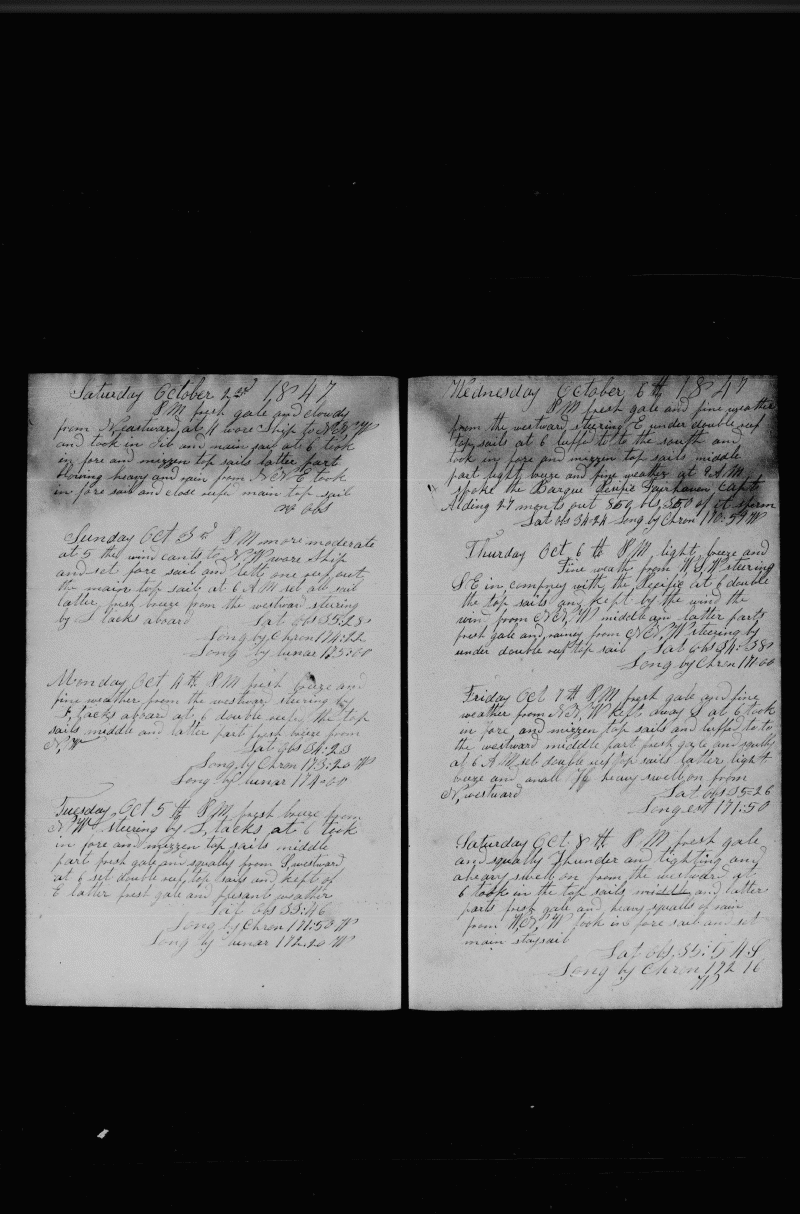 Saturday October 2nd 1847
P.M fresh gale and cloudy
from N eastward at 11 wore Ship to
and took in Jib and main sail at 6 took
in fore and mizzen top sails latter part
blowing heavy and rain from N N E took
in fore sail and close reefe main top sail
no obs
Sunday Oct 3rd P M more moderate
at 5 the wind cants to N, W wore Ship
and set fore sail and lett one reef out
the main top sail at 6 A M set all sail
latter fresh breeze from the westward steering
by S tacks aboard Lat obs 35:28
Long by Chron 174:22
Long by lunar 175:00
Monday Oct 4 th P M fresh breeze and
fine weather from the westward steering by
S, tacks aboard at 6 double reefe the top
sails middle and latter part fresh breeze from
N, W Lat obs 34:23
Long by Chron 173:20 W
Long by lunar 174:00
Tuesday Oct 5 th P M, fresh breeze from
N, W, steering by S, tacks at 6 took
in fore and mizzen top sails middle
part fresh gale and squally from S, westward
at 6 set double reef top sails and kept of
E latter fresh gale and plesant weather
Lat obs 33:46
Long by Chron 171:50 W
Long by lunar 172:20 W
Wednesday October 6 th 1847
P M fresh gale and fine weather
from the westward steering E under double reef
top sails at 6 luffe to to the south and
took in fore and mizzen top sails middle
part light breeze and fine weather at 9 A M
spoke the Barque Pecific Fairhaven Capt
Alding 27 months out 850 bls 350 of it sperm
Lat obs 34:24 Long by Chron 170:59 W
Thursday Oct 6 th P M light breeze and
Fine weath from W S W steering
S E in compney with the Pecific at 6 double
the top sails and kept by the wind the
wind from N N, W middle and latter parts
fresh gale and rainey from N N, W steering by
under double reef top sail Lat obs 34:38
Long by Chron 171:00
Friday Oct 7 th P M fresh gale and fine
weather from N N, W kept away S at 6 took
in fore and mizzen top sails and luffed to to
the westward middle part fresh gale and squally
at 6 A M set double reef top sails latter light
breeze and small heavy swell on from
N, westward Lat obs 35=26
Long est 171:50
Saturday Oct, 8 th P M fresh gale
and squally Thunder and lighting and
a heavy swell on from the westward at
6 took in the top sails middle and latter
parts fresh gale and heavy squalls of rain
from W, S, W took in fore sail and set
main staysail
Lat obs 35:54 S
Long by Chron 172 16
W